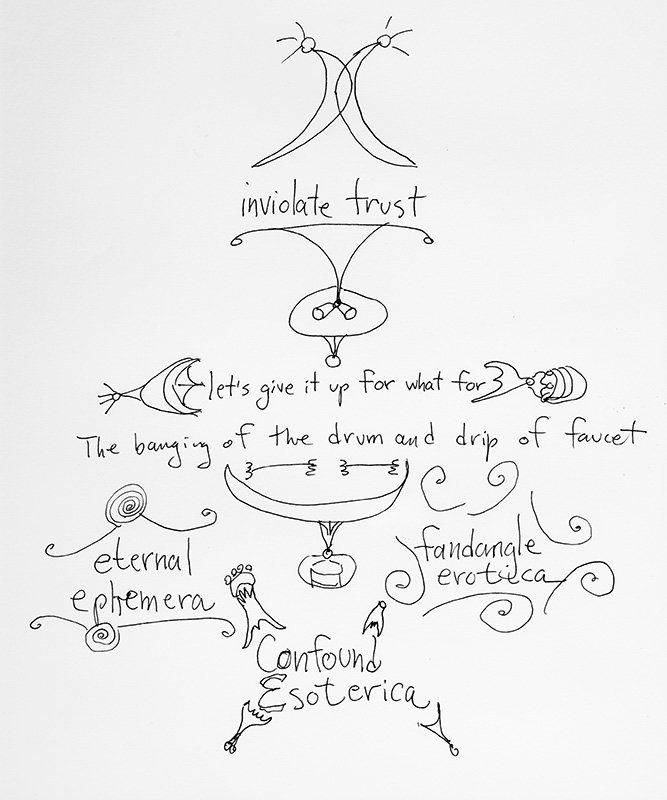 inviolate trust
let's give it up for what for
The banging of the drum and drip of faucet
eternal
ephemera
fandangle
erotica
Confound
Esoterica